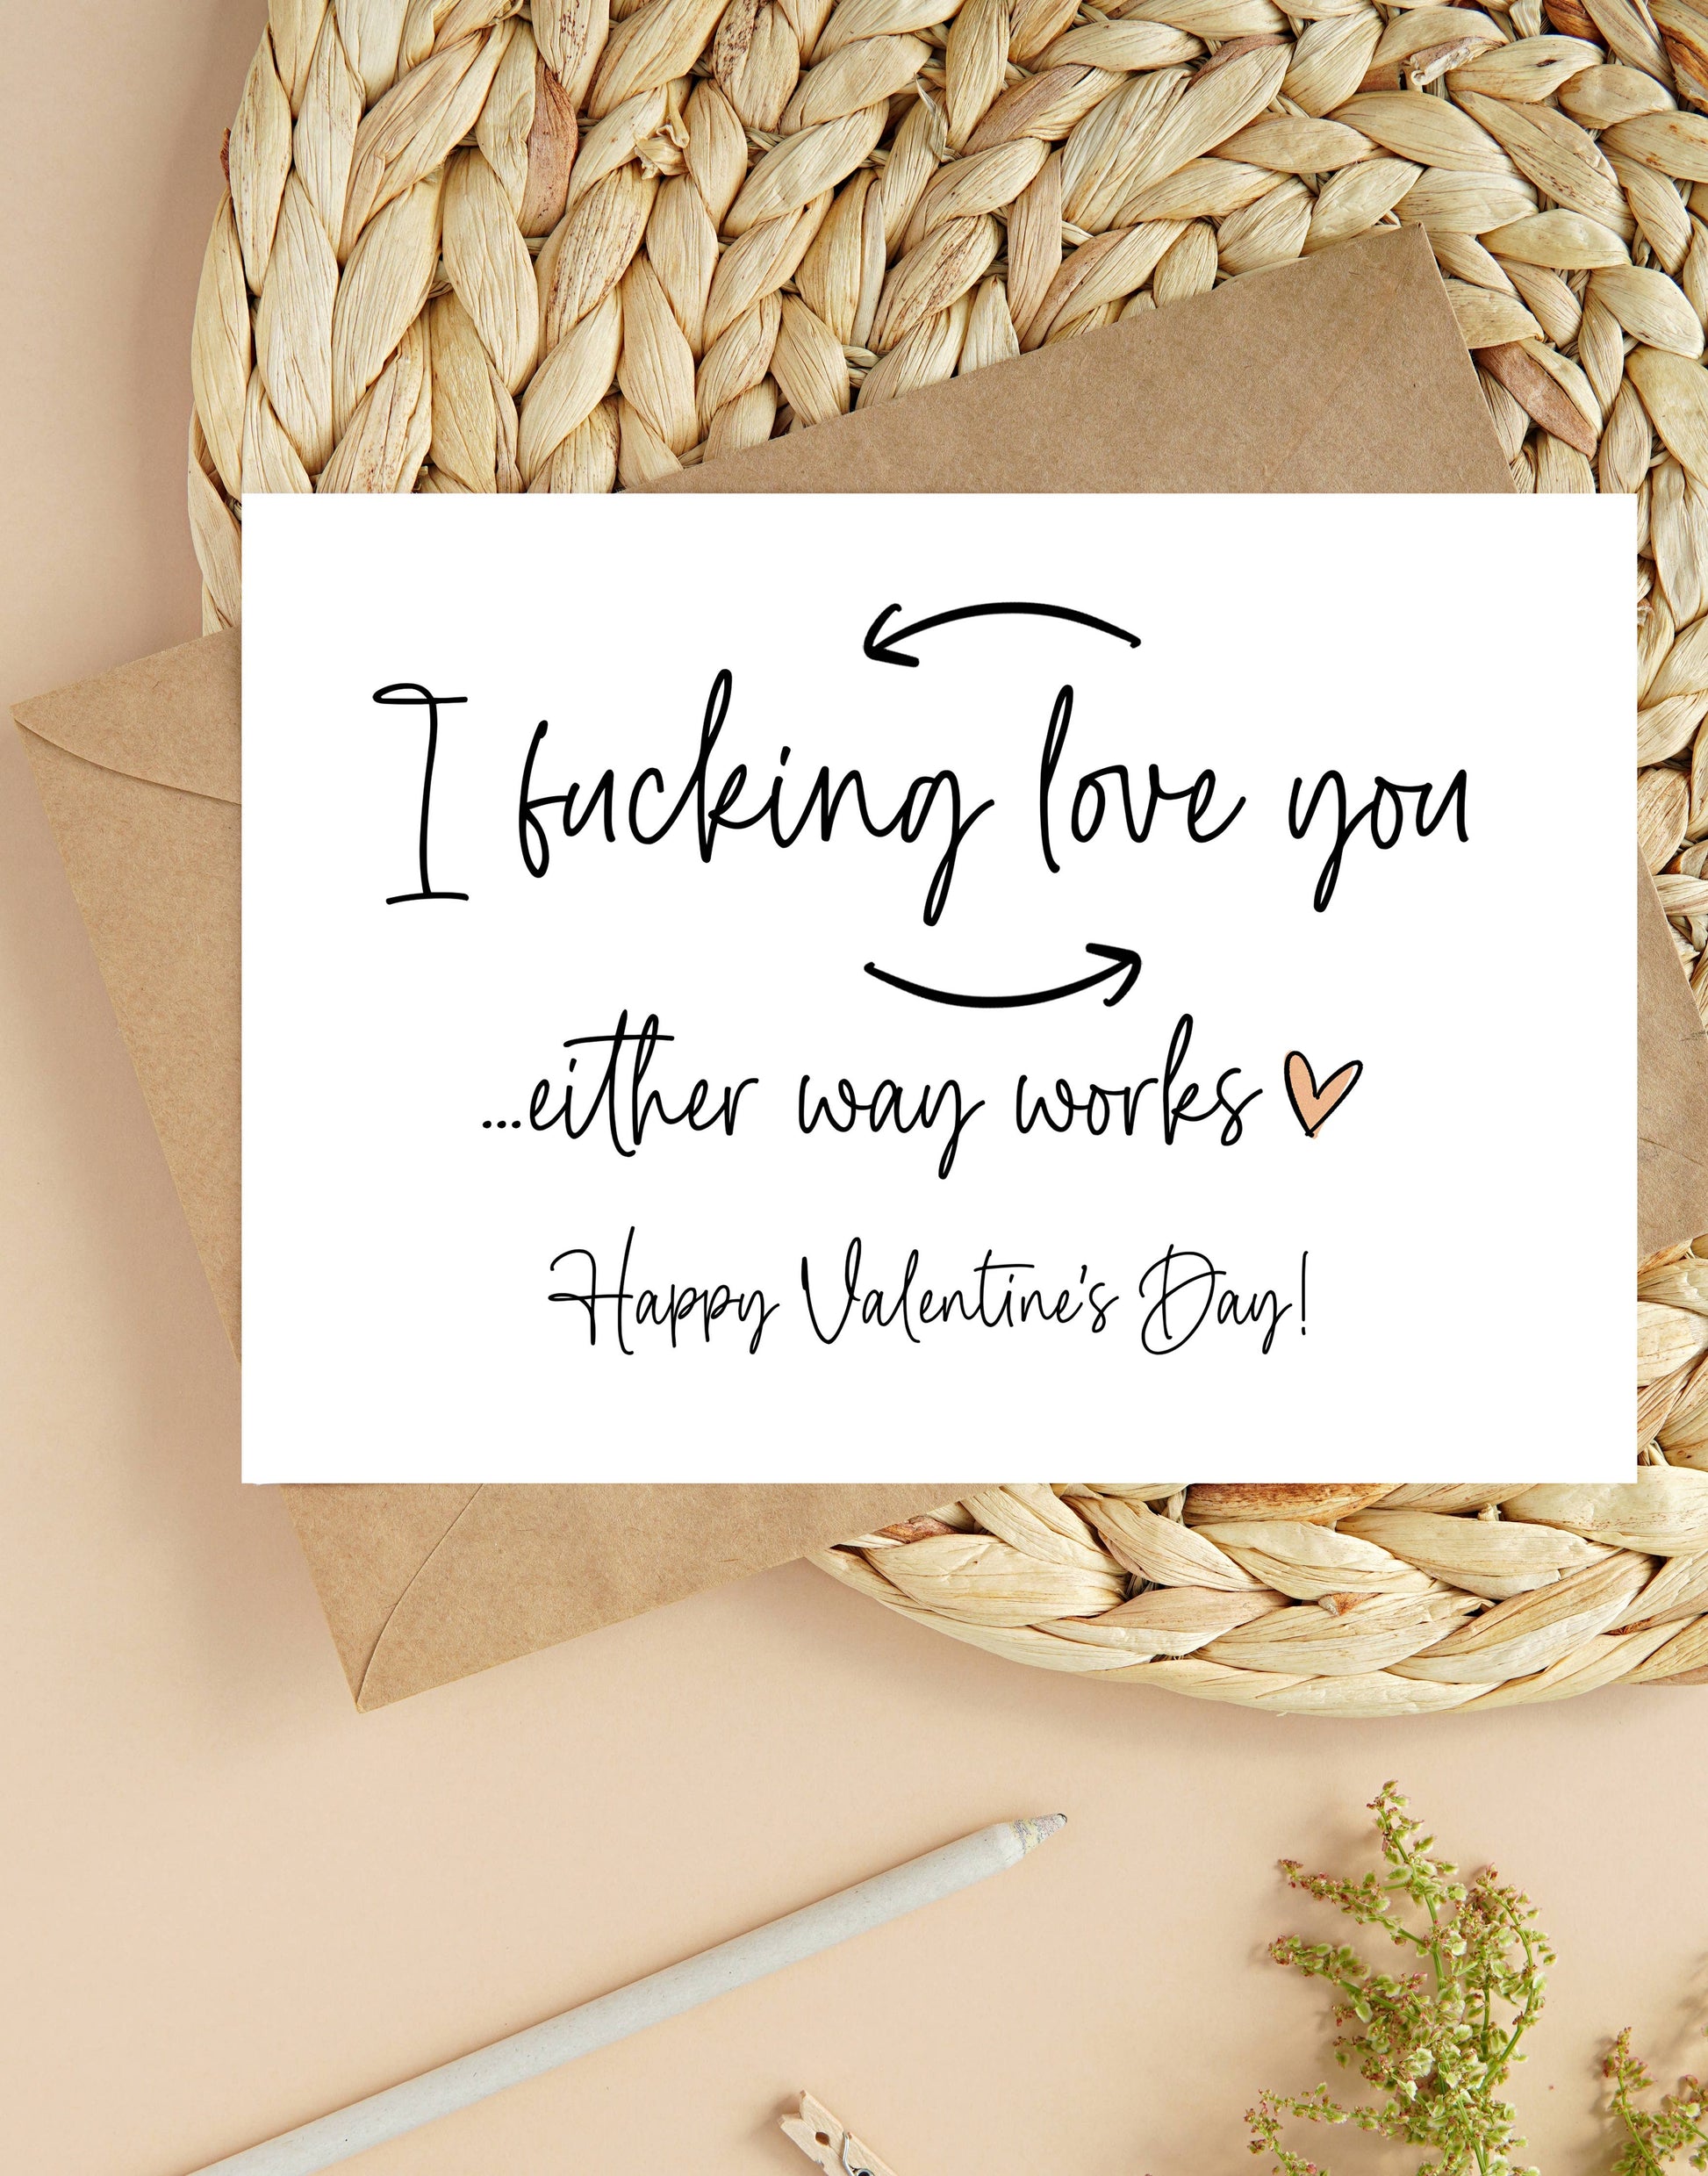 I fucking love you
...either way works
Happy Valentine's Day!